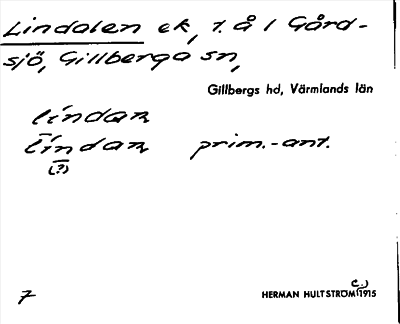 Lindalen ek, 1. å / Gård-
sjö, Gillberga sn,
Gillbergs hd, Värmlands län
lindaɴ
līndaɴ prim.-ant.
(?)
7
HERMAN HULTSTRÖM (c.) 1915